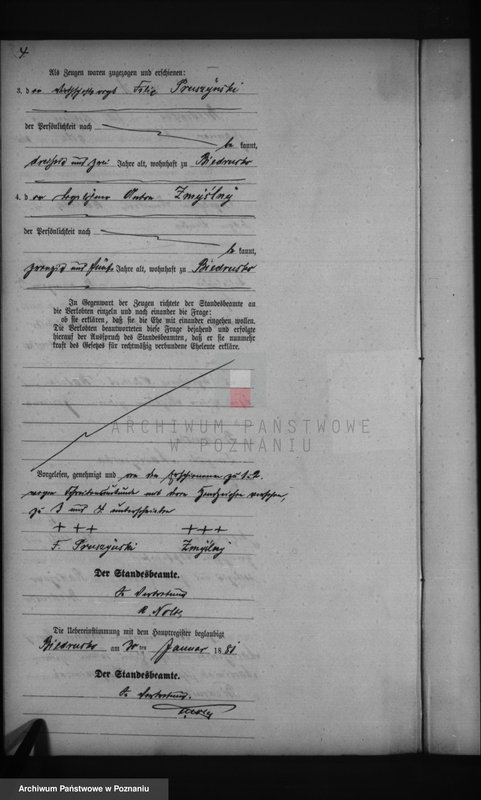 4
Als Zeugen waren zugezogen und erschienen:
3. der Felix Pruszÿnski
der Persönlichkeit nach
be kannt,
dreißig und zwei Jahre alt, wohnhaft zu Biedrusko
4. der Tagelöhner Anton Zmÿślnÿ
der Persönlichkeit nach
be kannt,
zwanzig und fünf Jahre alt, wohnhaft zu Biedrusko
In Gegenwart der Zeugen richtete der Standesbeamte an
die Verlobten einzeln und nach einander die Frage:
ob sie erklären, daß sie die Ehe mit einander eingehen wollen.
Die Verlobten beantworteten diese Frage bejahend und erfolgte
hierauf der Ausspruch des Standesbeamten, daß er sie nunmehr
kraft des Gesetzes für rechtmäßig verbundene Eheleute erkläre.
ARCHIWUM PAŃSTWOWE
W POZNANIU
Vorgelesen, genehmigt und von den Erschienenen zu 1. 2.
wegen Schreibensunkunde mit dem Handzeichen versehen,
zu 3 und 4 unterschrieben
+ + + + + +
F. Pruszÿnski Zmÿślnÿ
Der Standesbeamte.
In Vertretung
Die Uebereinstimmung mit dem Hauptregister beglaubigt
Biedrusko am 30 ten Januar 1881
Der Standesbeamte.
In Vertretung.
Archiwum Państwowe w Poznaniu